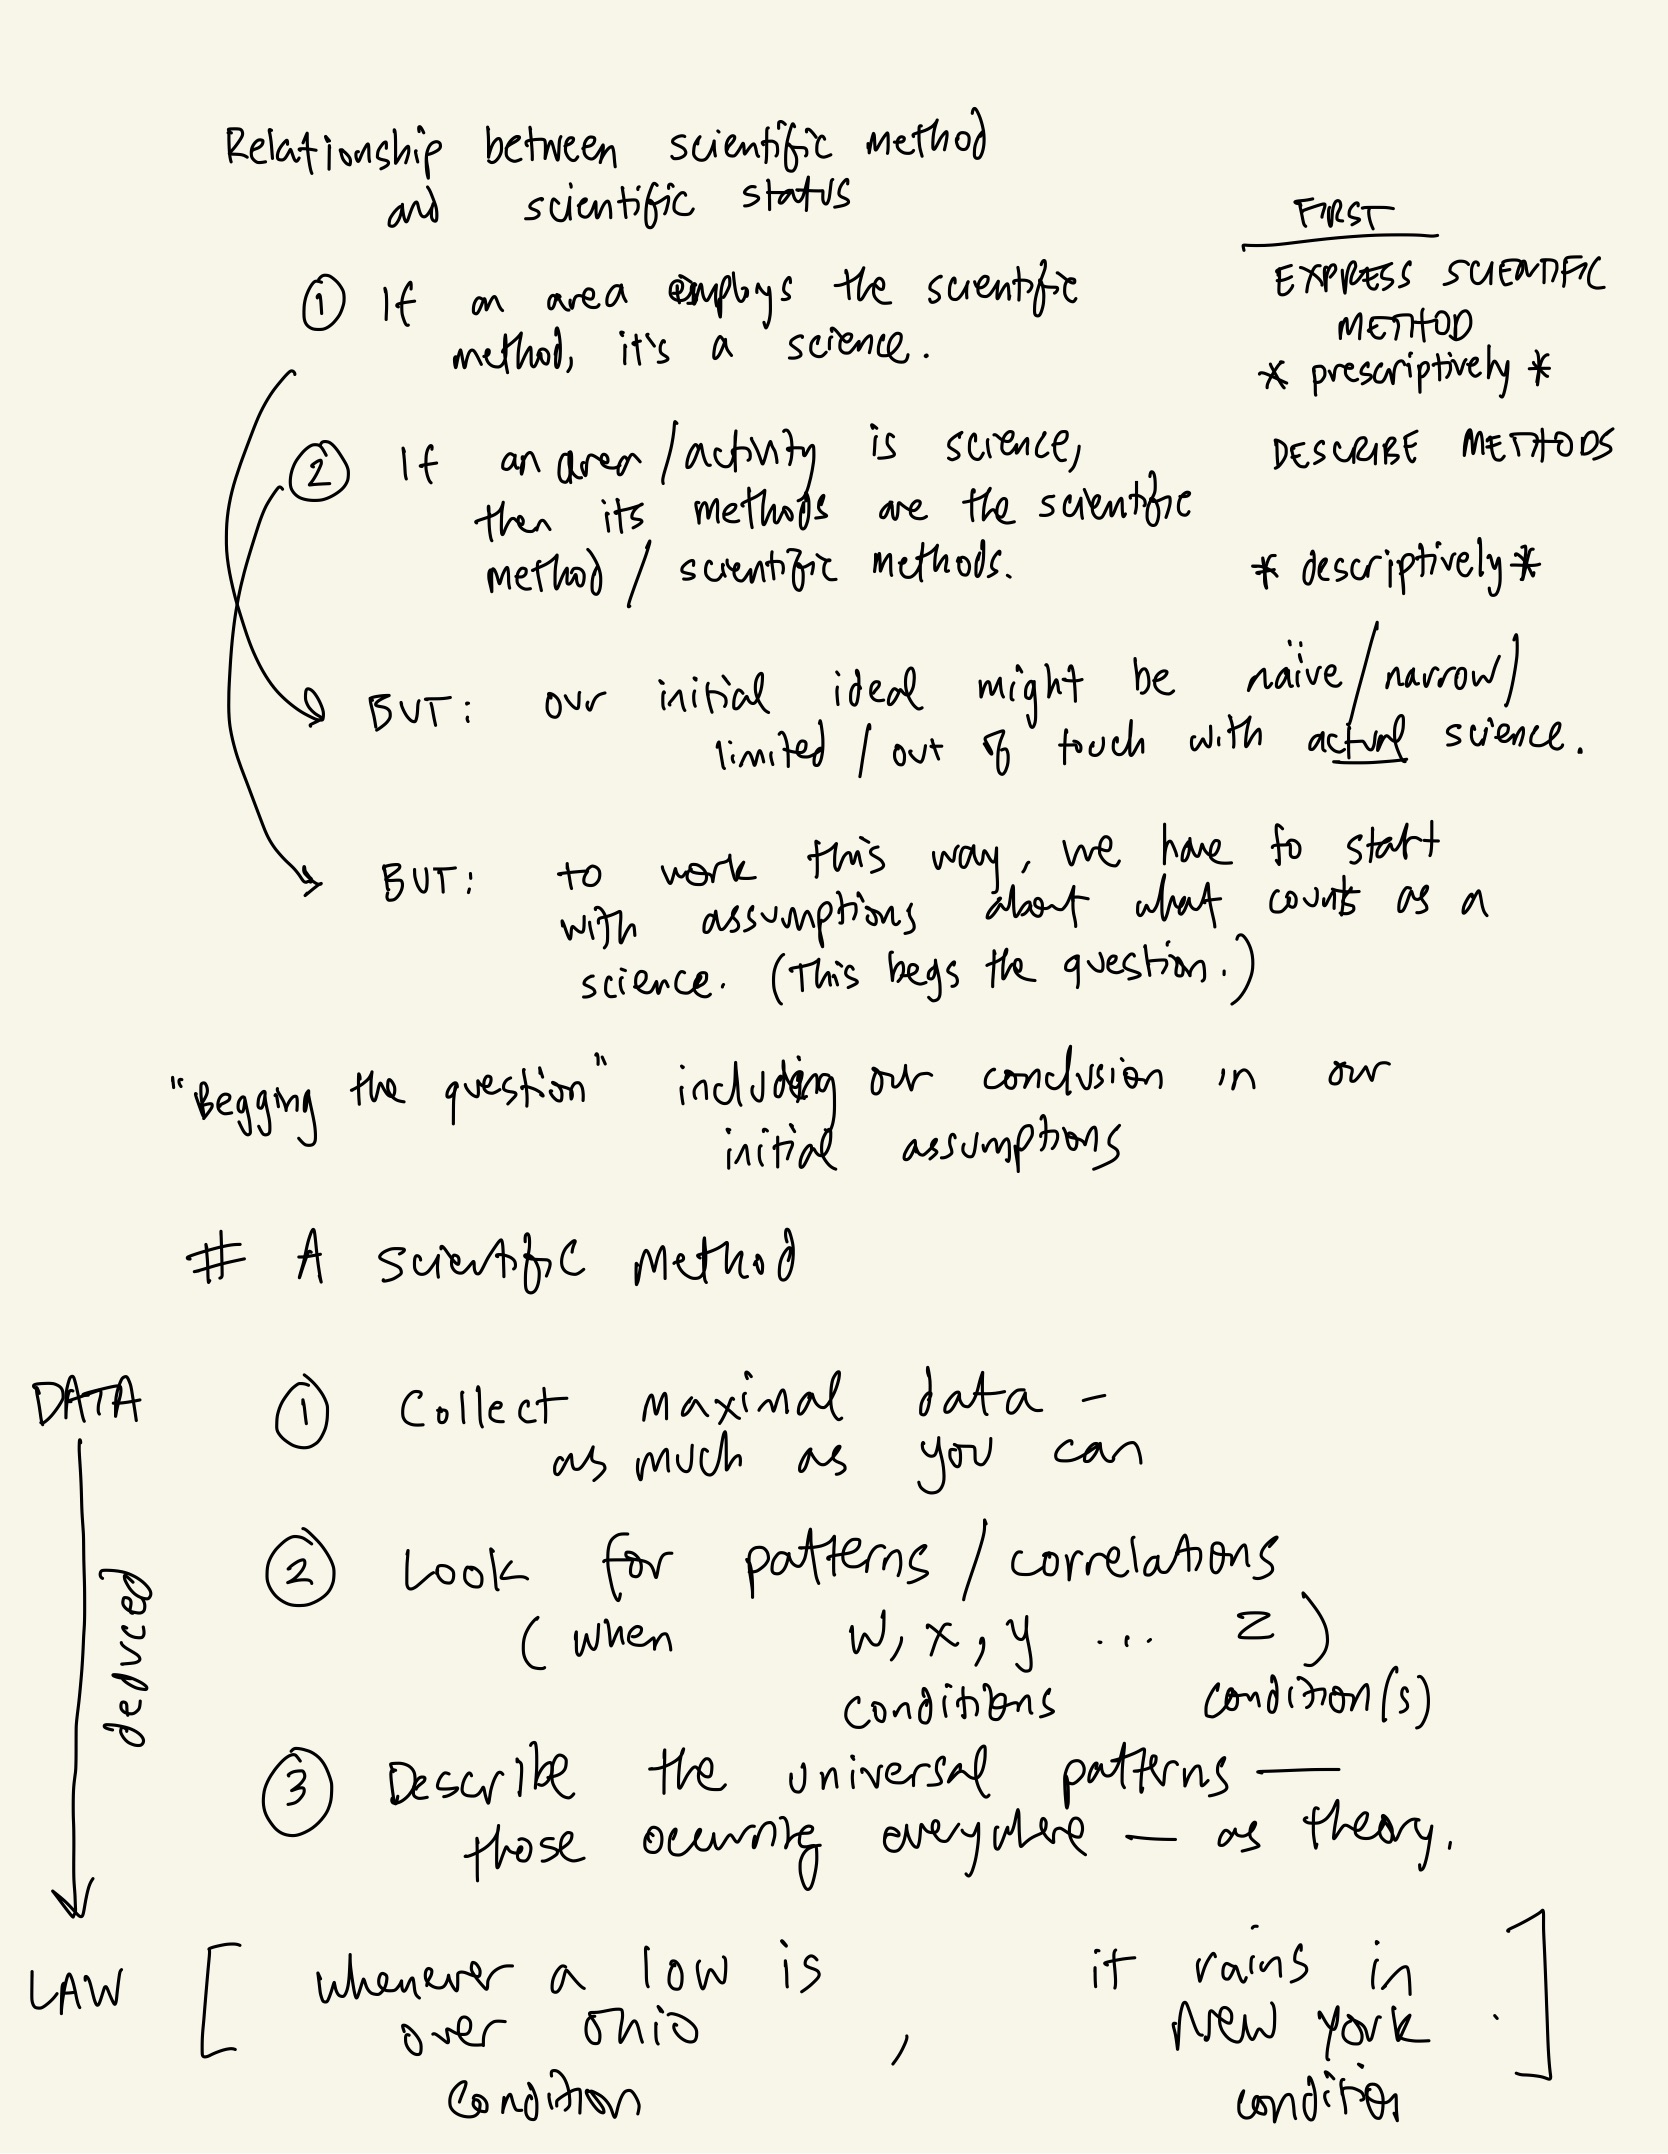 Relationship between scientific method
and scientific status
FIRST
EXPRESS SCIENTIFIC
METHOD
* prescriptively *
① If an area employs the scientific
method, it's a science.
② If an area/activity is science,
then its methods are the scientific
method / scientific methods.
DESCRIBE METHODS
* descriptively *
BUT: our initial ideal might be naïve/narrow/
limited / out of touch with actual science.
BUT: to work this way, we have to start
with assumptions about what counts as a
science. (This begs the question.)
"Begging the question" including our conclusion in our
initial assumptions
# A scientific method
DATA
① Collect maximal data -
as much as you can
deduced
② Look for patterns / correlations
(when w, x, y ... z)
conditions condition(s)
③ Describe the universal patterns —
those occurring everywhere — as theory.
LAW [ whenever a low is it rains in
over Ohio , New York . ]
condition condition